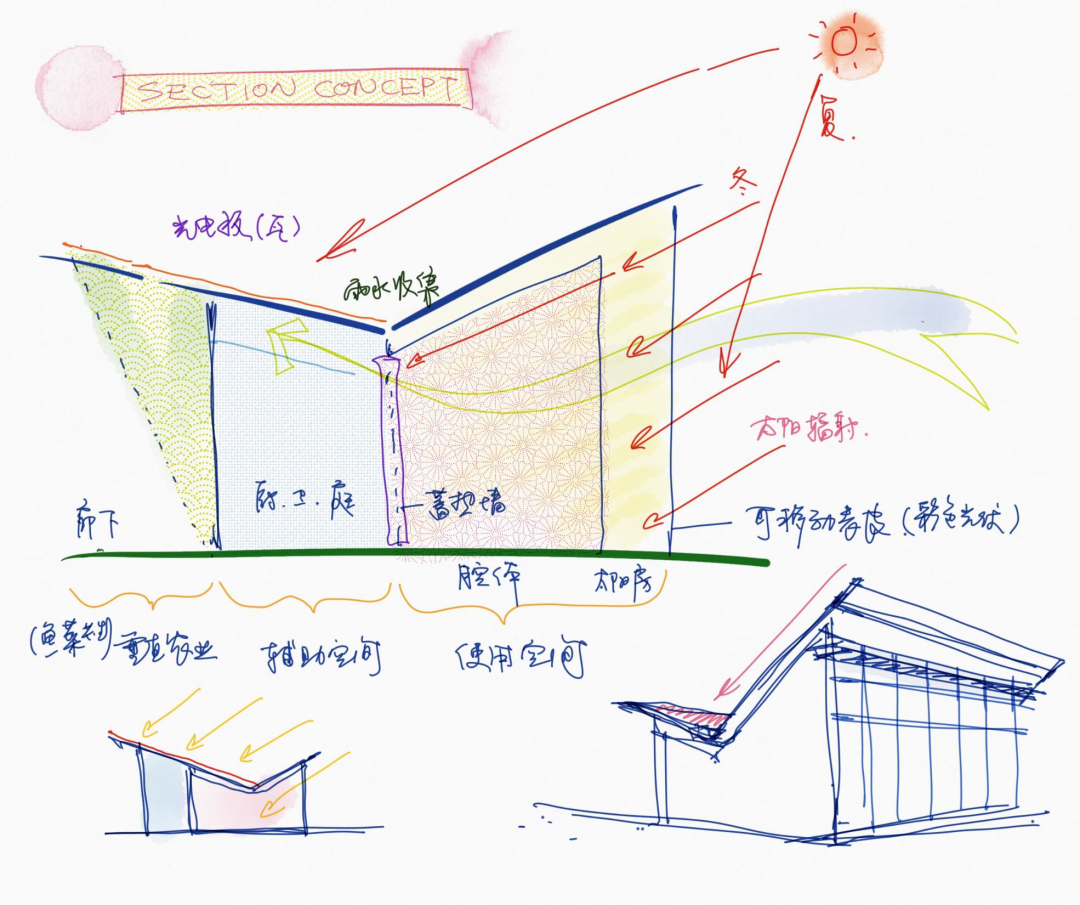 SECTION CONCEPT
夏.
冬
光电板(瓦)
雨水收集
太阳辐射.
厨.卫.庭
蓄热墙
廊下
可移动表皮(彩色光伏)
腔体
太阳房
(鱼菜共生)垂直农业
辅助空间
使用空间